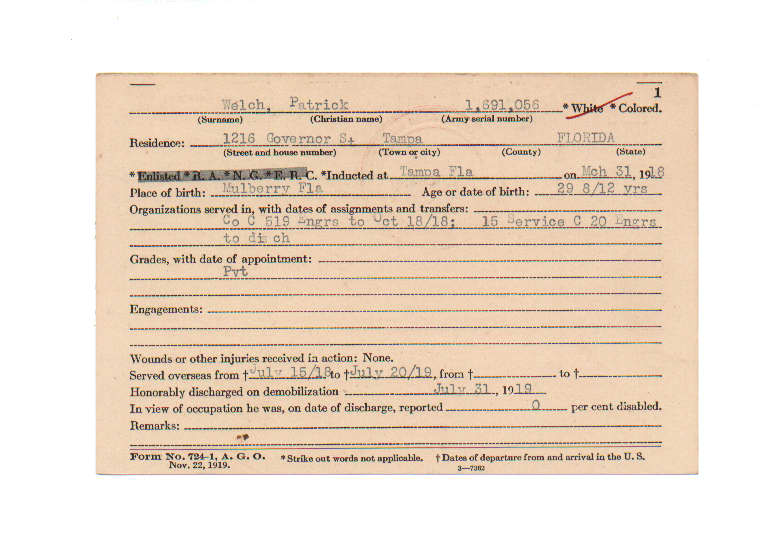 1
Welch, Patrick 1,691,056 * White * Colored.
(Surname) (Christian name) (Army serial number)
Residence: 1216 Governor St Tampa FLORIDA
(Street and house number) (Town or city) (County) (State)
* Enlisted * R. A. * N. G. * E. R. C. *Inducted at Tampa Fla on Mch 31, 1918
Place of birth: Mulberry Fla Age or date of birth: 29 8/12 yrs
Organizations served in, with dates of assignments and transfers:
Co C 519 Engrs to Oct 18/18; 15 Service C 20 Engrs
to disch
Grades, with date of appointment:
Pvt
Engagements:
Wounds or other injuries received in action: None.
Served overseas from † July 15/18 to † July 20/19, from † to †
Honorably discharged on demobilization July 31, 1919
In view of occupation he was, on date of discharge, reported 0 per cent disabled.
Remarks:
Form No. 724-1, A. G. O. * Strike out words not applicable. † Dates of departure from and arrival in the U. S.
Nov. 22, 1919. 3—7362